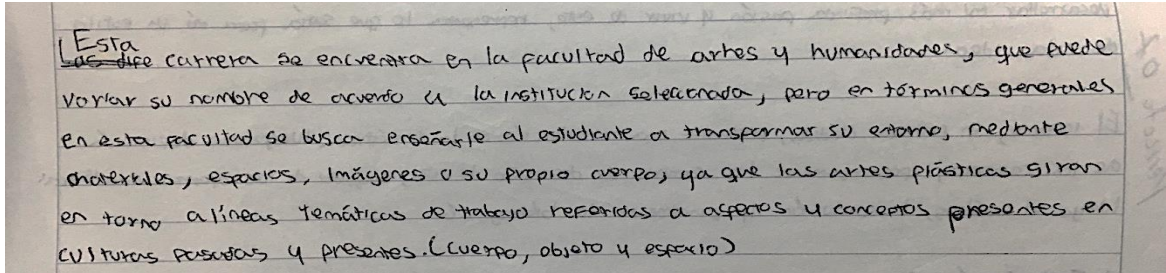 Esta
Las dife carrera se encuentra en la facultad de artes y humanidades, que puede
variar su nombre de acuerdo a la institución seleccionada, pero en términos generales
en esta facultad se busca enseñarle al estudiante a transformar su entorno, mediante
materiales, espacios, imágenes o su propio cuerpo, ya que las artes plásticas giran
en torno a líneas temáticas de trabajo referidas a aspectos y conceptos presentes en
culturas pasadas y presentes. (cuerpo, objeto y espacio)